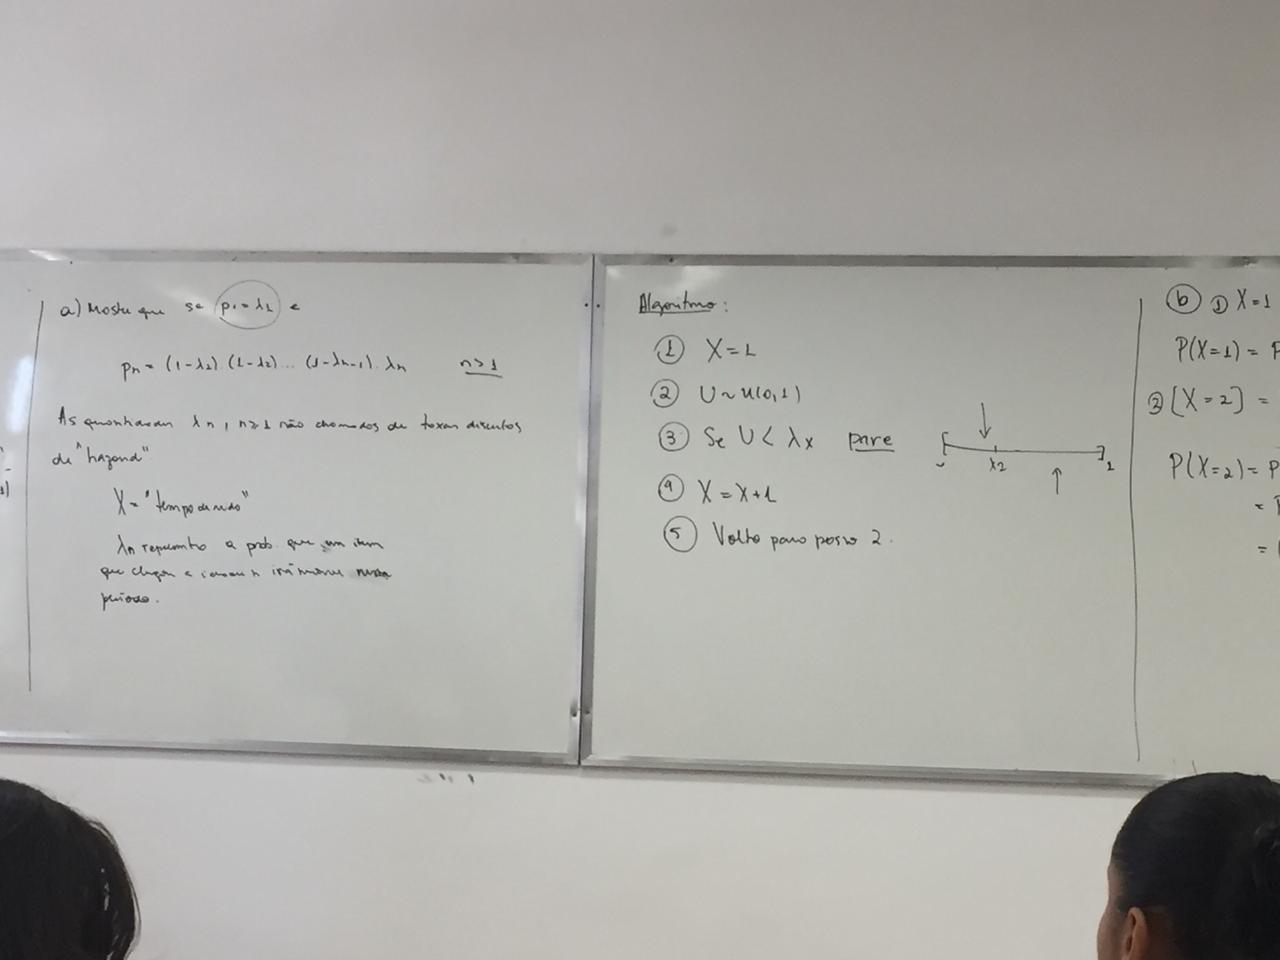 a) Mostre que se p₁ = λ₁ e
pn = (1-λ₁).(1-λ₂)... (1-λn-1).λn n>1
As quantidades λn, n≥1 são chamados de taxas discretas
de "hazard".
X = "tempo de vida"
λn representa a prob. que um item
que chegou a
período.
Algoritmo:
① X = 1
② U ~ U(0,1)
③ Se U < λx pare
④ X = X + 1
⑤ Volto para passo 2.
λ2 1
ⓑ ① X = 1
P(X=1) = P
② [X = 2] =
P(X=2) = P
=
=